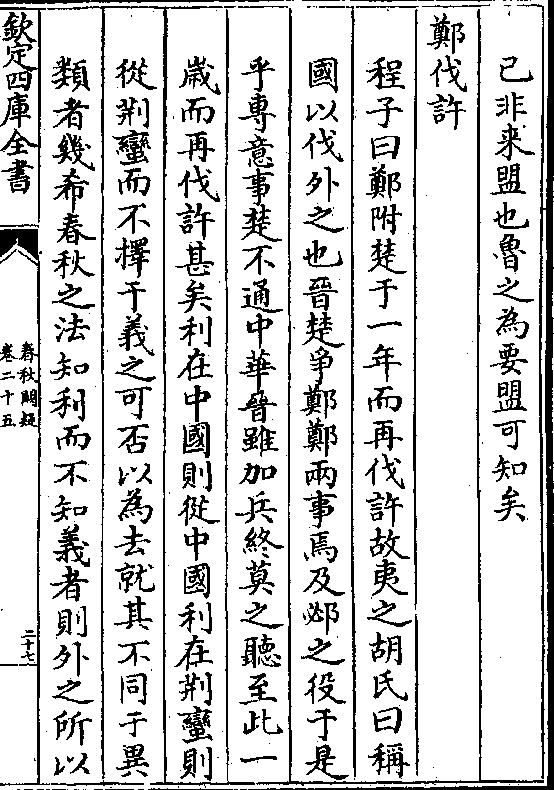 已非来盟也魯之為要盟可知矣
鄭伐許
程子曰鄭附楚于一年而再伐許故夷之胡氏曰稱
國以伐外之也晉楚爭鄭鄭兩事焉及邲之役于是
乎専意事楚不通中華晉雖加兵終莫之聽至此一
歲而再伐許甚矣利在中國則從中國利在荆蠻則
從荆蠻而不擇于義之可否以為去就其不同于異
類者幾希春秋之法知利而不知義者則外之所以
欽定四庫全書
春秋闕疑
卷二十五
二十七